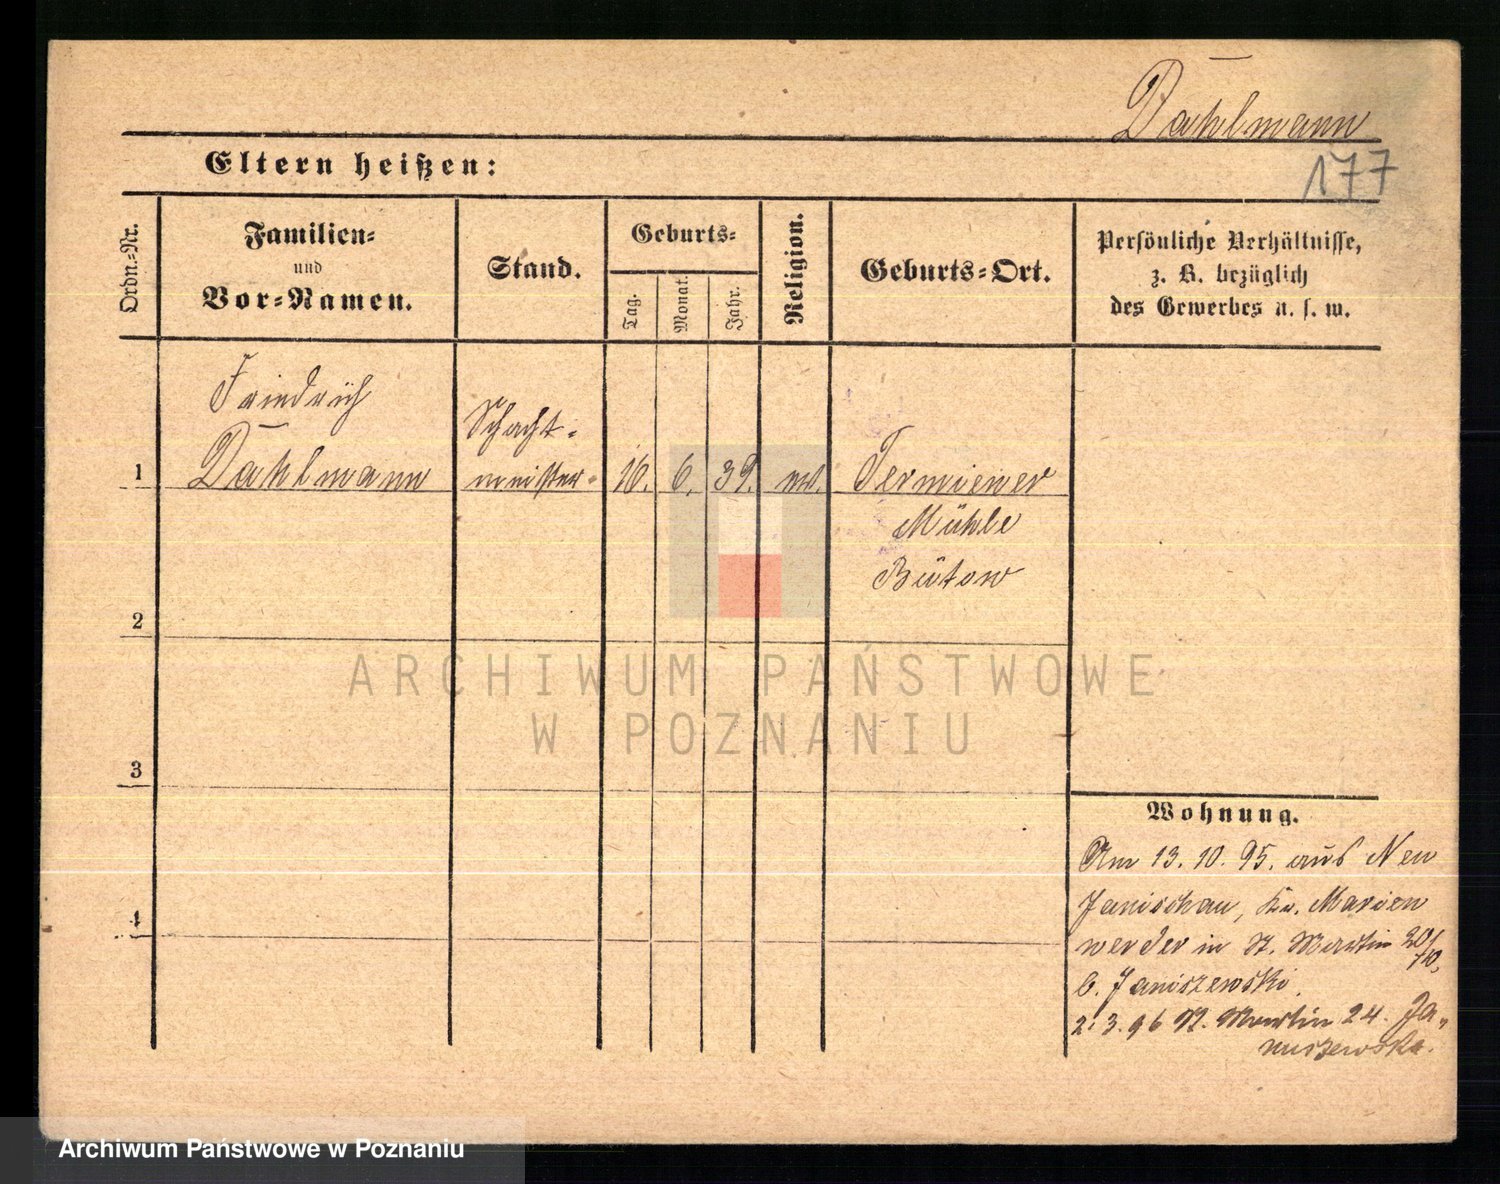 Dahlmann
177
Eltern heißen:
Ordn.-Nr.
Familien-
und
Vor-Namen.
Stand.
Geburts-
Tag.
Monat.
Jahr.
Religion.
Geburts-Ort.
Persönliche Verhältnisse,
z. B. bezüglich
des Gewerbes u. s. w.
Friedrich
Schacht-
1 Dahlmann meister 16. 6. 39. ev. Termiener
Mühle
Bütow
2
3
4
Wohnung.
Am 13.10.95. aus Neu
Janischau, Kr. Marien
werder in St. Martin 20/
b. Janiszewski.
2.3.96 St. Martin 24. Ja-
nuszewska.
ARCHIWUM PAŃSTWOWE
W POZNANIU
Archiwum Państwowe w Poznaniu